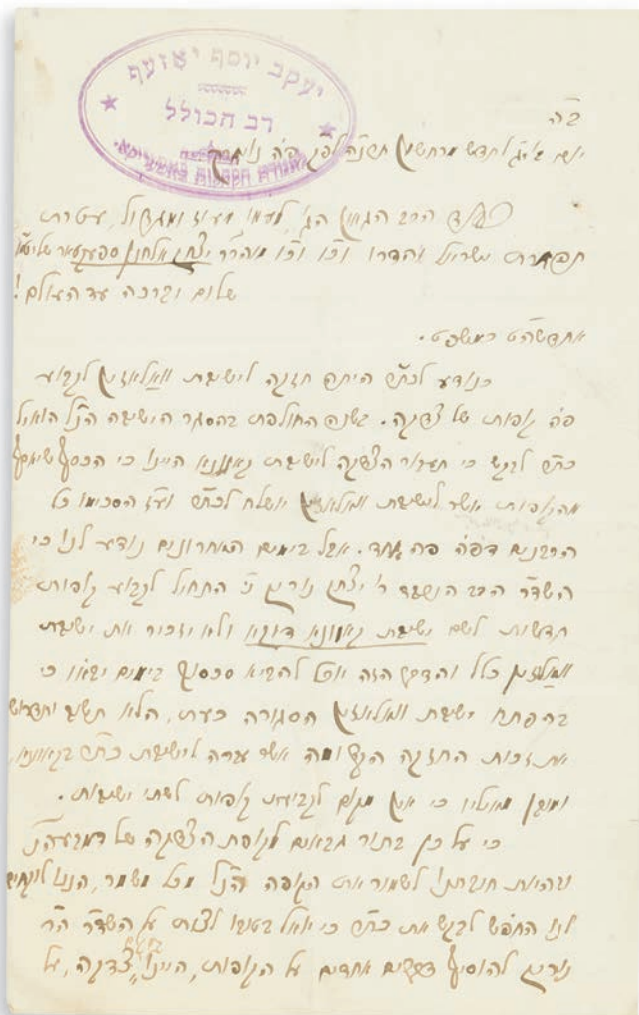 יעקב יוסף יאזעף
רב הכולל
ב״ה
יום לחדש מרחשון לפ״ק פ״ה נויארק
הרב הגאון הג׳ לעמו מעוז ומגדול, עטרת
תפארת ישראל והדרו וכו׳ וכו׳ מוהר״ר יצחק אלחנן ספעקטאר שליט״א
שלום וברכה עד העולם!
אחדשה״ט כמשפט.
כנודע לכת״ר היתה חזקה לישיבת וואלאזין לקבוע
פה קופות של צדקה. בשנה החולפת בהסגר הישיבה הנ״ל הואיל
כת״ר לבקש כי תעבור הצדקה לישיבת קאוונא היינו כי הכסף שיאסף
מהקופות אשר לישיבת וואלאזין יושלח לכת״ר וע״ז הסכימו כל
הרבנים דפה פה אחד. אבל בימים האחרונים נודע לנו כי
השד״ר הרב הנ״ל ר׳ יצחק נ״י התחיל לקבוע קופות
חדשות לשם ישיבת קאוונא דוקא ולא יזכיר את ישיבת
וואלאזין כלל והדבר הזה יוכל להביא סכסוך בימים יבאו כי
בהפתח ישיבת וואלאזין הסגורה כעת, הלא תשוב ותדרוש
את זכות החזקה הקדומה אשר ערה לישיבת כת״ר בקאוונא,
ומובן מאליו כי אין מקום לקביעת קופות לשתי ישיבות.
כי על כן בתור גבאים לקופת הצדקה של
ובהיות חובתנו לשמור את הקופה הנ״ל מכל משמר, הננו לוקחים
לנו החפש לבקש את כת״ר כי יואל בטובו לצוות על השד״ר הר׳
להוסיף דברים אחדים על הקופות, היינו „צדקה, על